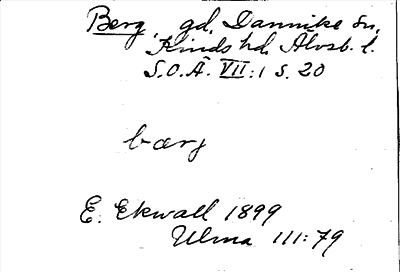 Berg, gd, Dannike sn,
Kinds hd. Älvsb. l.
S.O.Ä. VII:1 s. 20
bærj
E. Ekwall 1899
Ulma 111:79